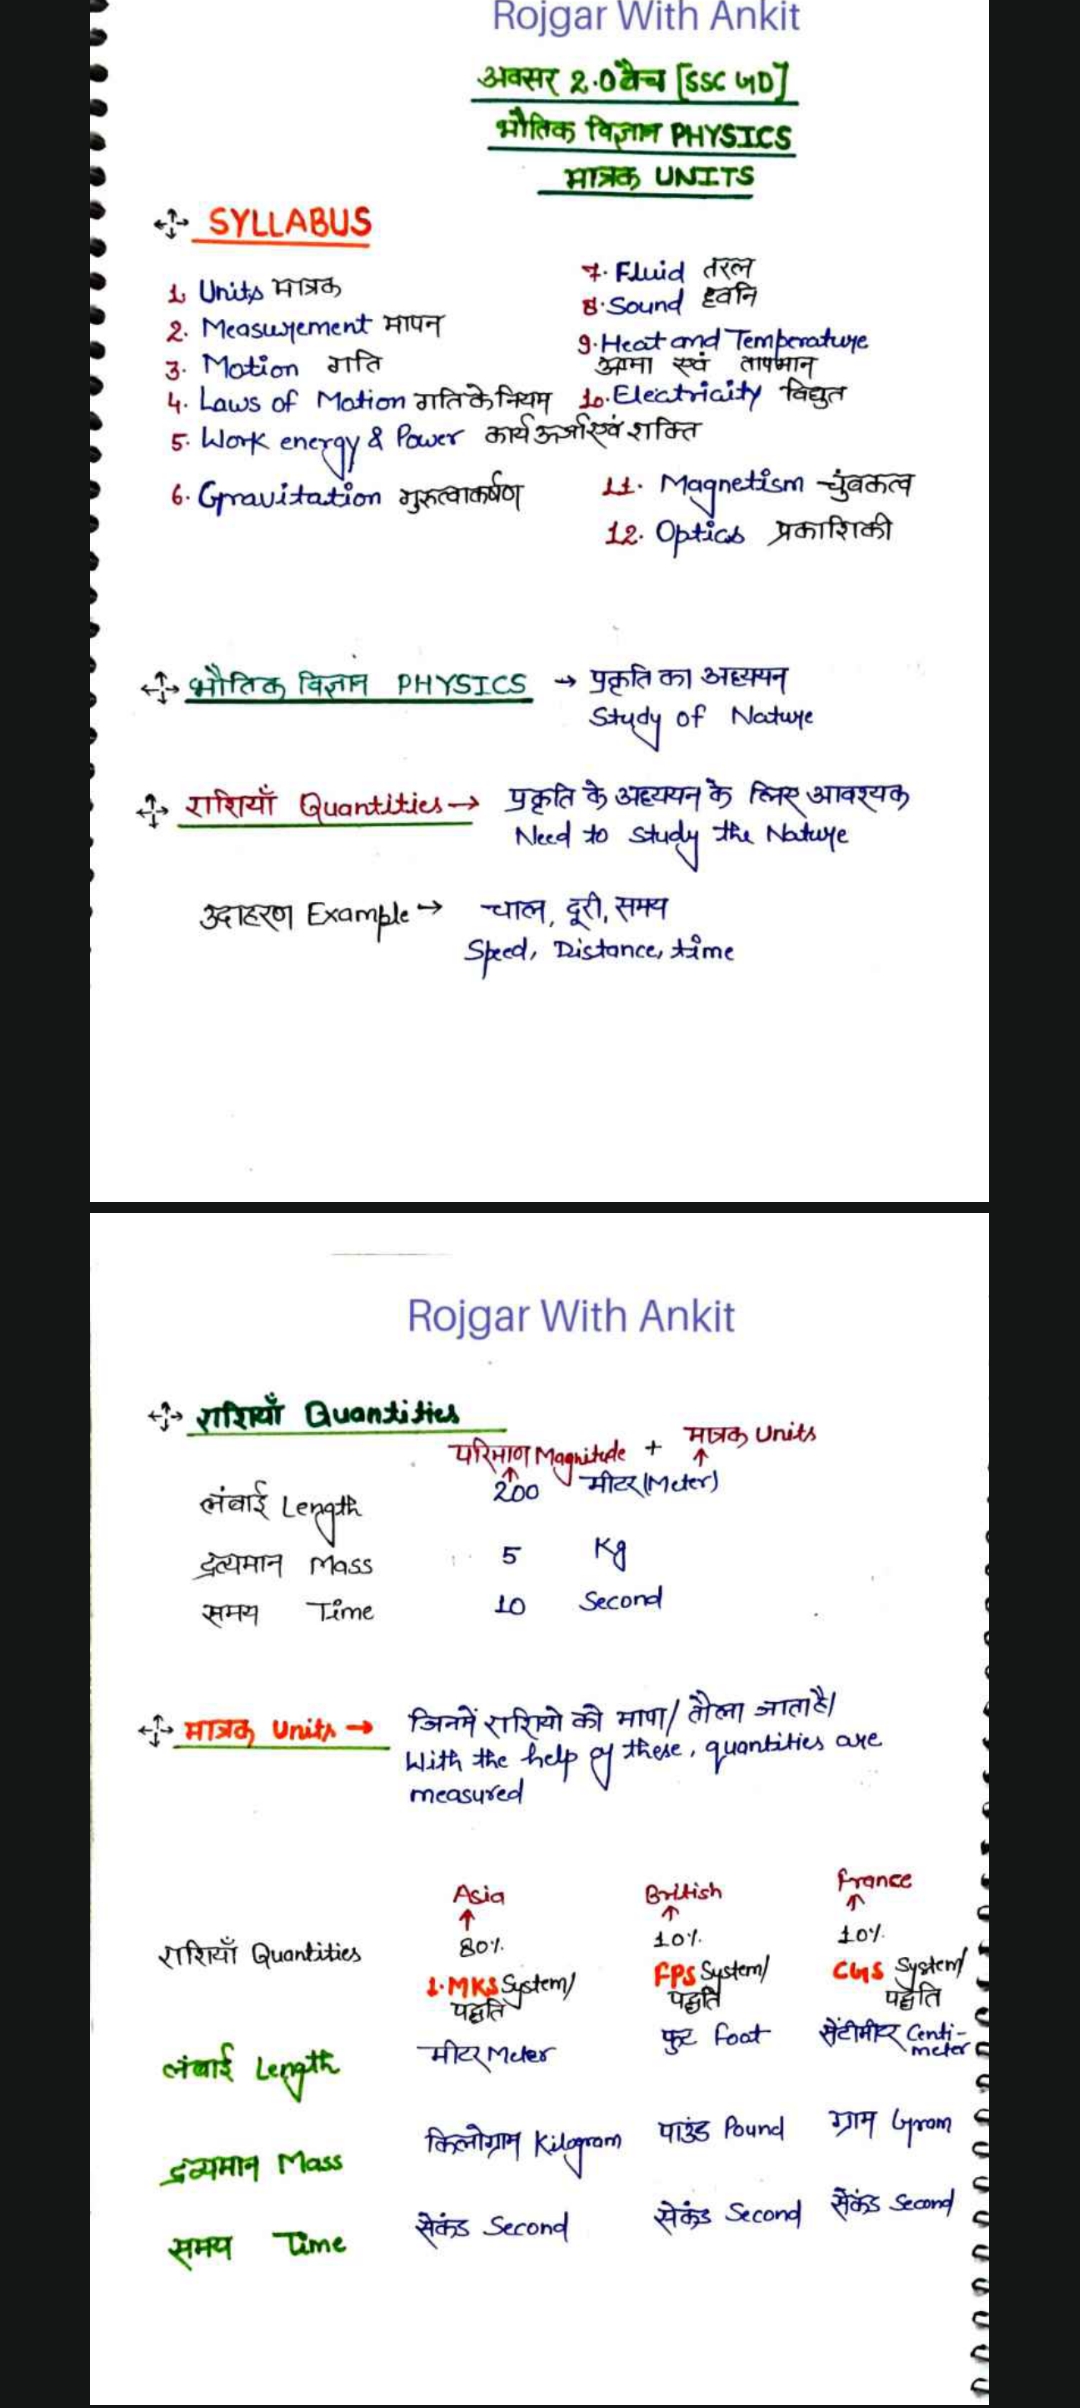 Rojgar With Ankit
अवसर 2.0 बैच [SSC GD]
भौतिक विज्ञान PHYSICS
मात्रक UNITS
SYLLABUS
1. Units मात्रक
2. Measurement मापन
3. Motion गति
4. Laws of Motion गति के नियम
5. Work energy & Power कार्य ऊर्जा एवं शक्ति
6. Gravitation गुरुत्वाकर्षण
7. Fluid तरल
8. Sound ध्वनि
9. Heat and Temperature
आमा एवं तापमान
10. Electricity विद्युत
11. Magnetism चुंबकत्व
12. Optics प्रकाशिकी
भौतिक विज्ञान PHYSICS → प्रकृति का अध्ययन
Study of Nature
राशियाँ Quantities → प्रकृति के अध्ययन के लिए आवश्यक
Need to study the Nature
उदाहरण Example → चाल, दूरी, समय
Speed, Distance, time
Rojgar With Ankit
राशियाँ Quantities
परिमाण Magnitude + मात्रक Units
लंबाई Length 200 मीटर (Meter)
द्रव्यमान Mass 5 Kg
समय Time 10 Second
मात्रक Units → जिनमें राशियो को मापा/तौला जाता है/
With the help of these, quantities are
measured
Asia British France
80% 10% 10%
राशियाँ Quantities 1. MKS System/ FPS System/ CGS System/
पद्धति पद्धति पद्धति
लंबाई Length मीटर Meter फुट Foot सेंटीमीटर Centi-
meter
द्रव्यमान Mass किलोग्राम Kilogram पाउंड Pound ग्राम Gram
समय Time सेकंड Second सेकंड Second सेकंड Second